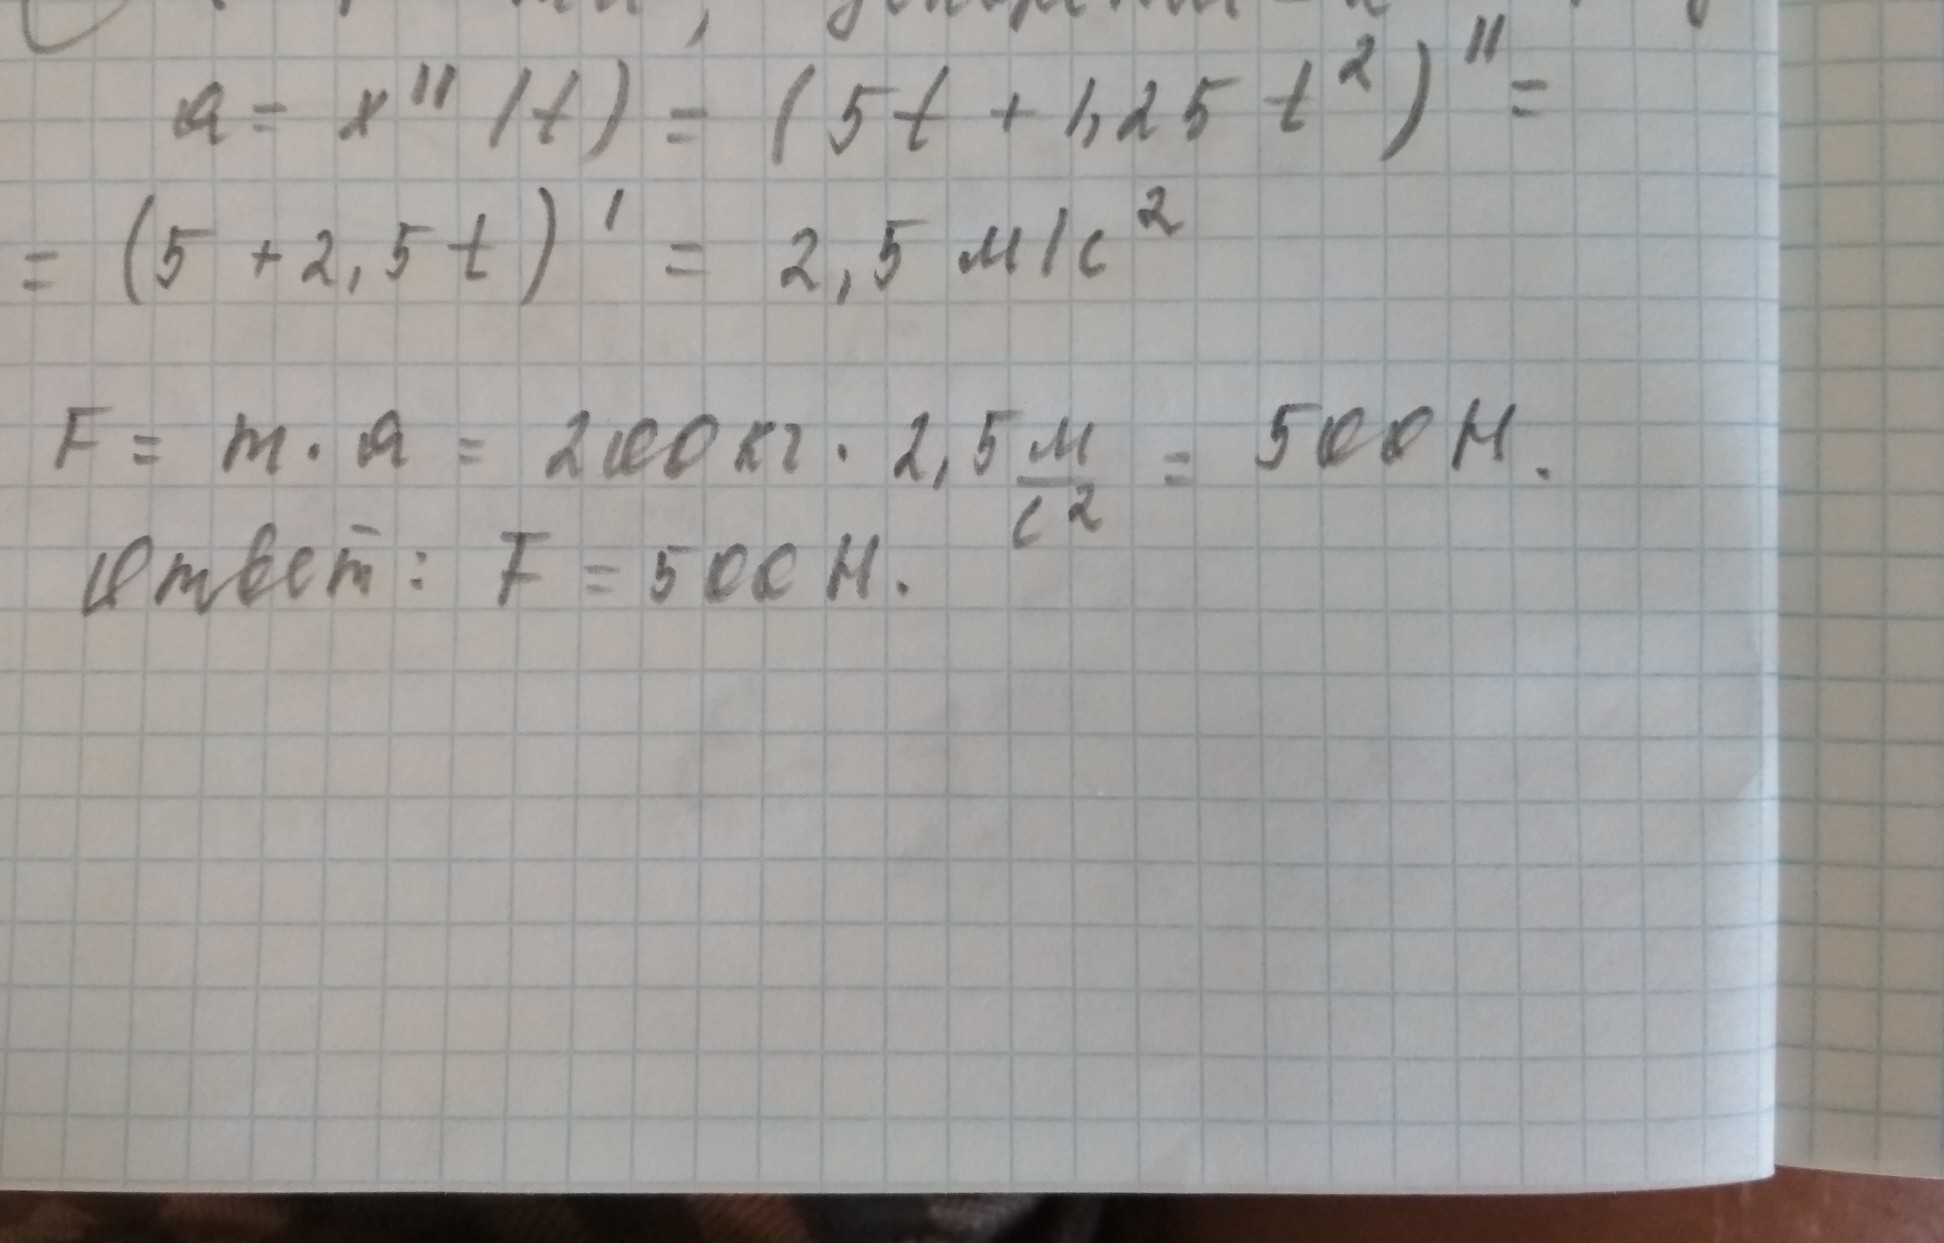 a = x''(t) = (5t + 1,25 t²)'' =
= (5 + 2,5t)' = 2,5 м/с²
F = m · a = 200 кг · 2,5 м/с² = 500 Н.
Ответ: F = 500 Н.